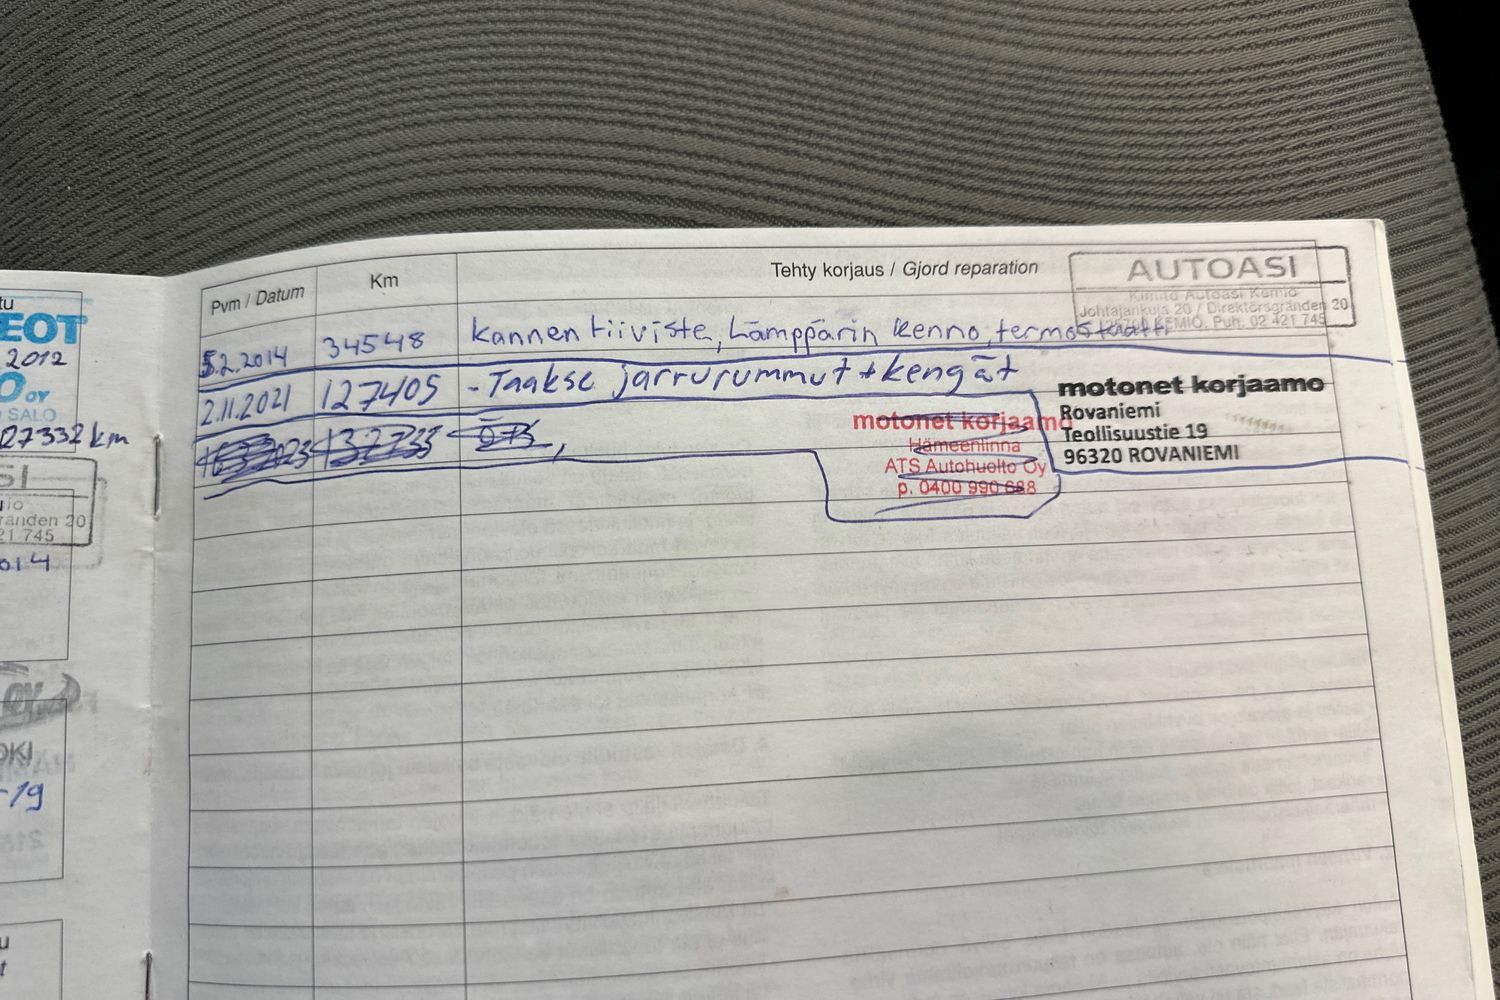 tu
EOT
.2012
O OY
SALO
27332 km
SI
gränden 20
21 745
2014
OY
OKI
-19
u
t
Pvm / Datum
Km
Tehty korjaus / Gjord reparation
AUTOASI
Kimito Autoasi Kemiö
Johtajankuja 20 / Direktörsgränden 20
KEMIÖ. Puh. 02 421 745
5.2.2014 34548 Kannen tiiviste, Lämppärin kenno, termostaatti
2.11.2021 127405 - Taakse jarrurummut + kengät
motonet korjaamo
Rovaniemi
Teollisuustie 19
96320 ROVANIEMI
132733
motonet korjaamo
Hämeenlinna
ATS Autohuolto Oy
p. 0400 990 688